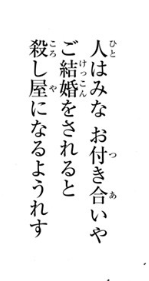 人はみな お付き合いや
ご結婚をされると
殺し屋になるようれす